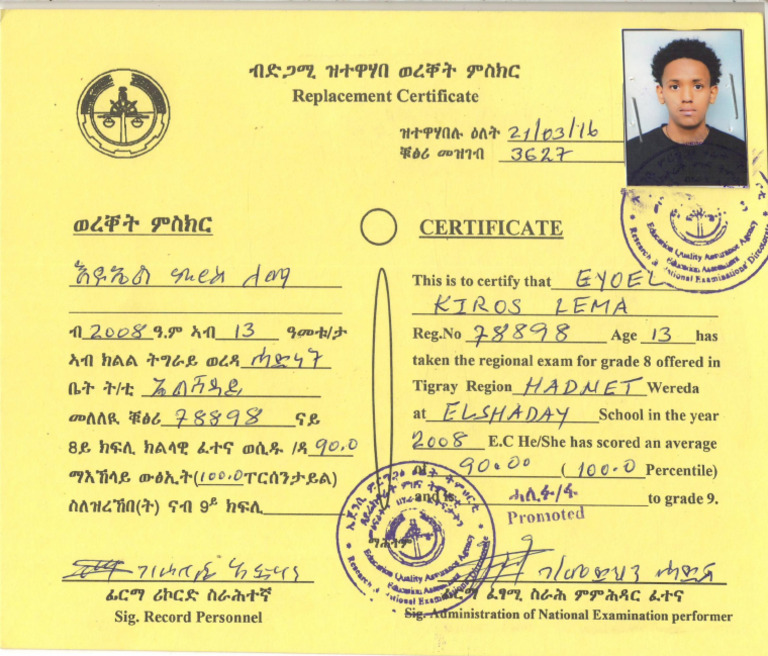 ብድጋሚ ዝተዋሃበ ወረቐት ምስክር
Replacement Certificate
ዝተዋሃበሉ ዕለት 21/03/16
ቑፅሪ መዝገብ 3627
ወረቐት ምስክር
እዮኤል ኪሮስ ለማ
ብ 2008 ዓ.ም ኣብ 13 ዓመቱ/ታ
ኣብ ክልል ትግራይ ወረዳ ሓድነት
ቤት ት/ቲ ኤልሻዳይ
መለለዪ ቑፅሪ 78898 ናይ
8ይ ክፍሊ ክልላዊ ፈተና ወሲዱ /ዳ 90.0
ማእኸላይ ውፅኢት(100.0ፐርሰንታይል)
ስለዝረኸበ(ት) ናብ 9ይ ክፍሊ
ማሕተም
ፊርማ ሪኮርድ ስራሕተኛ
Sig. Record Personnel
CERTIFICATE
This is to certify that EYOEL
KIROS LEMA
Reg.No 78898 Age 13 has
taken the regional exam for grade 8 offered in
Tigray Region HADNET Wereda
at ELSHADAY School in the year
2008 E.C He/She has scored an average
90.00 (100.0 Percentile)
and is ሓሊፉ/ፋ to grade 9.
Promoted
ፊርማ ፈፃሚ ስራሕ ምምሕዳር ፈተና
Sig. Administration of National Examination performer
Education Quality Assurance Agency
Education Assessment
Education Quality Assurance Agency
Education Assessment